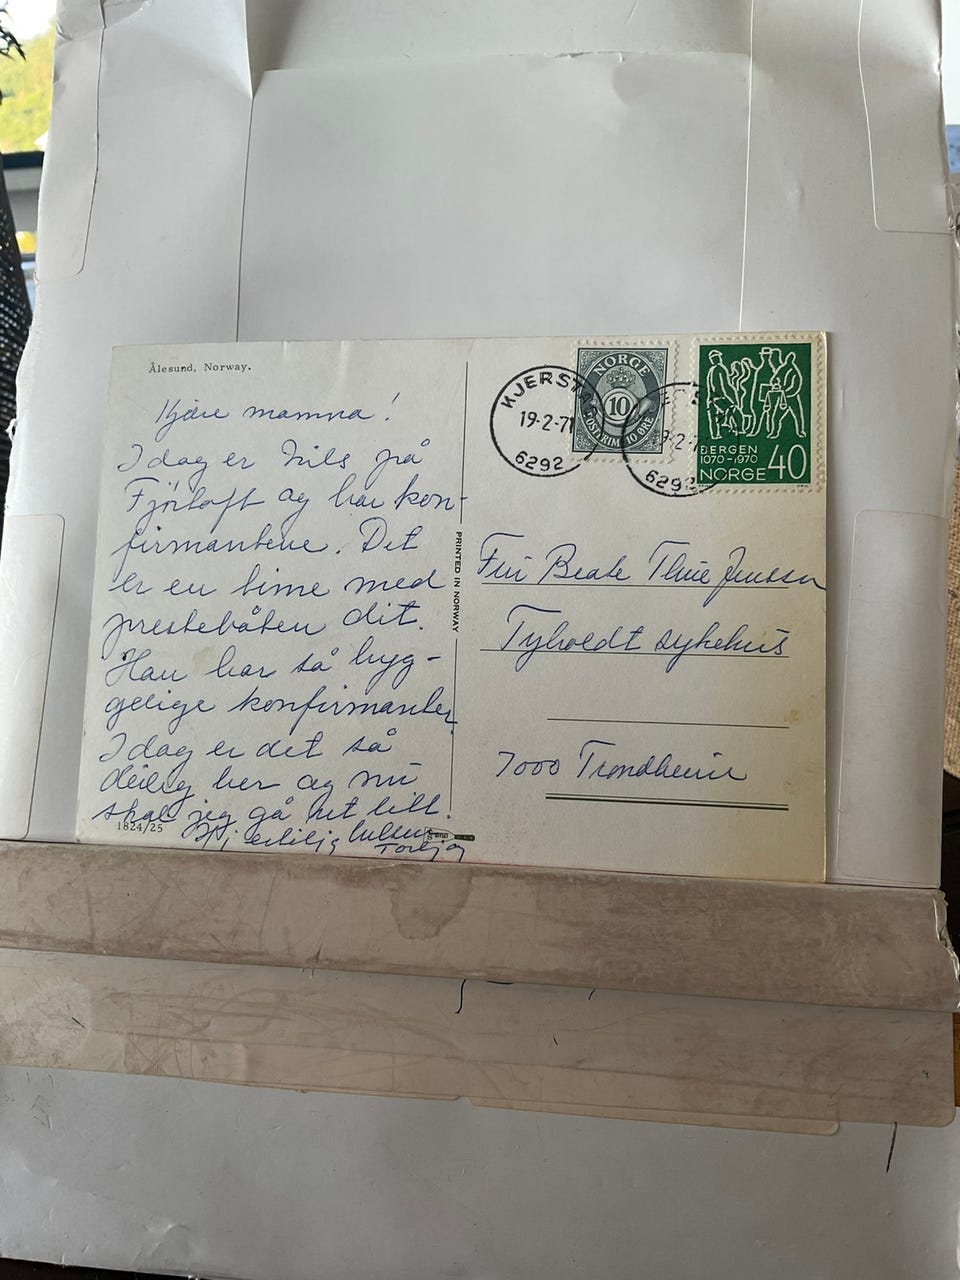 Ålesund, Norway.
Kjære mamma!
I dag er Nils på
Fjörtoft og har kon-
firmantene. Det
er en time med
prestebåten dit.
Han har så hyg-
gelige konfirmanter
I dag er det så
deilig her og nu
skal jeg gå ut litt.
1824/25
PRINTED IN NORWAY
KJERSTAD
19-2-71
6292
NORGE
10
POSTFRIM. 10 ØRE
6292
BERGEN
1070-1970
NORGE 40
Fru Beate Thue Jenssen
Tyholdt sykehus
7000 Trondheim